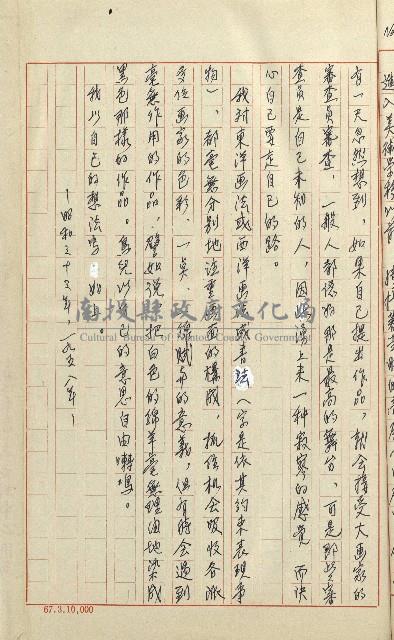 有一天忽然想到，如果自己提出作品，就会接受大画家的
審查員審查，一般人都認為那是最高的舞台，可是那些審
查員是自己未知的人，因而湧上来一种寂寞的感覚，而決
心自己要走自己的路。
我対東洋画法或西洋画法或書法（字是依其約束表現事
物），都毫無分別地注重画面的構成，抓住机会吸收各派
各位画家的色彩，一点、一線賦与的意義，但有時会遇到
毫無作用的作品，譬如说把白色的綿羊毫無理由地染成
黑色那樣的作品。鳥兒以自己的意思自由囀鳴。
我以自己的想法写 如 。
—昭和三十三年，一九五八年—
進入美術学校以前
南投縣政府文化局
Cultural Bureau of Nantou County Government
67.3.10,000